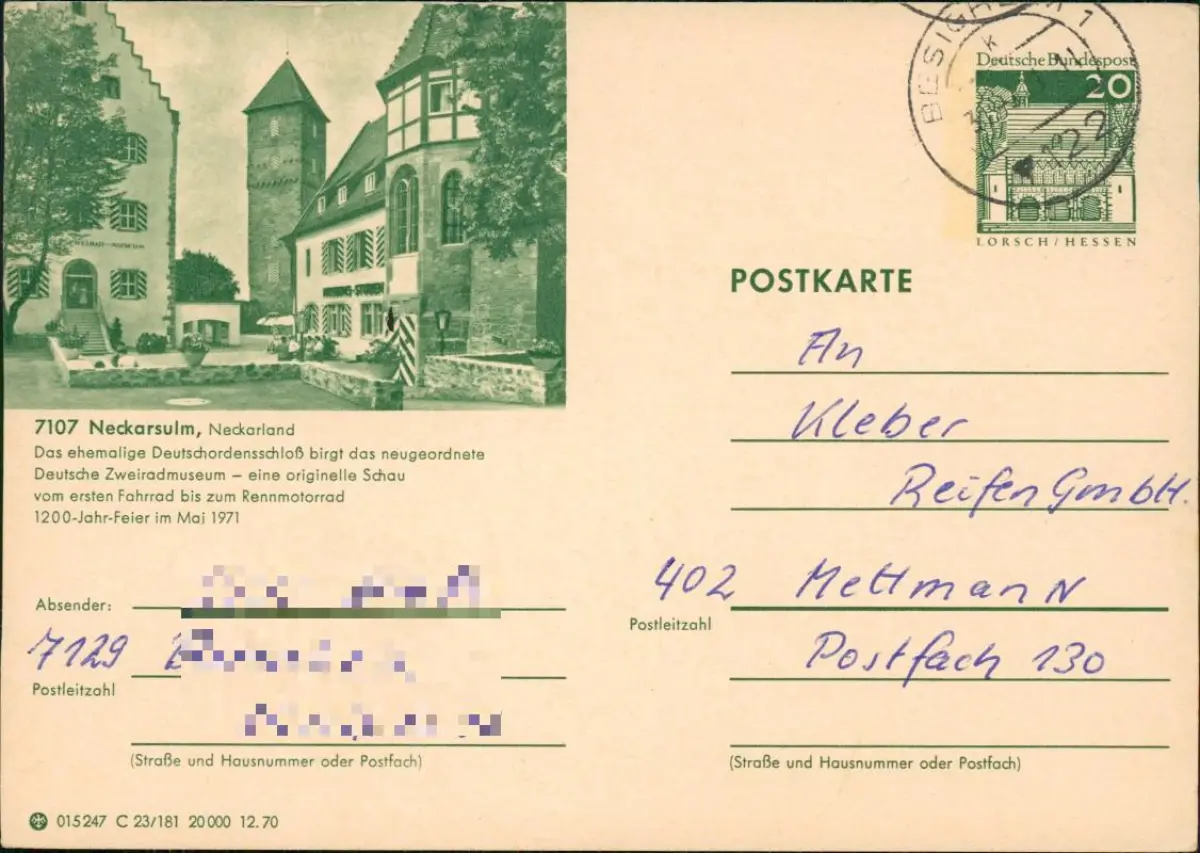 BESIGHEIM 1
k
7122
Deutsche Bundespost
20
LORSCH/HESSEN
POSTKARTE
An
Kleber
Reifen GmbH.
402 Mettmann
Postleitzahl
Postfach 130
(Straße und Hausnummer oder Postfach)
7107 Neckarsulm, Neckarland
Das ehemalige Deutschordensschloß birgt das neugeordnete
Deutsche Zweiradmuseum – eine originelle Schau
vom ersten Fahrrad bis zum Rennmotorrad
1200-Jahr-Feier im Mai 1971
Absender:
7129
Postleitzahl
(Straße und Hausnummer oder Postfach)
015247 C 23/181 20 000 12.70